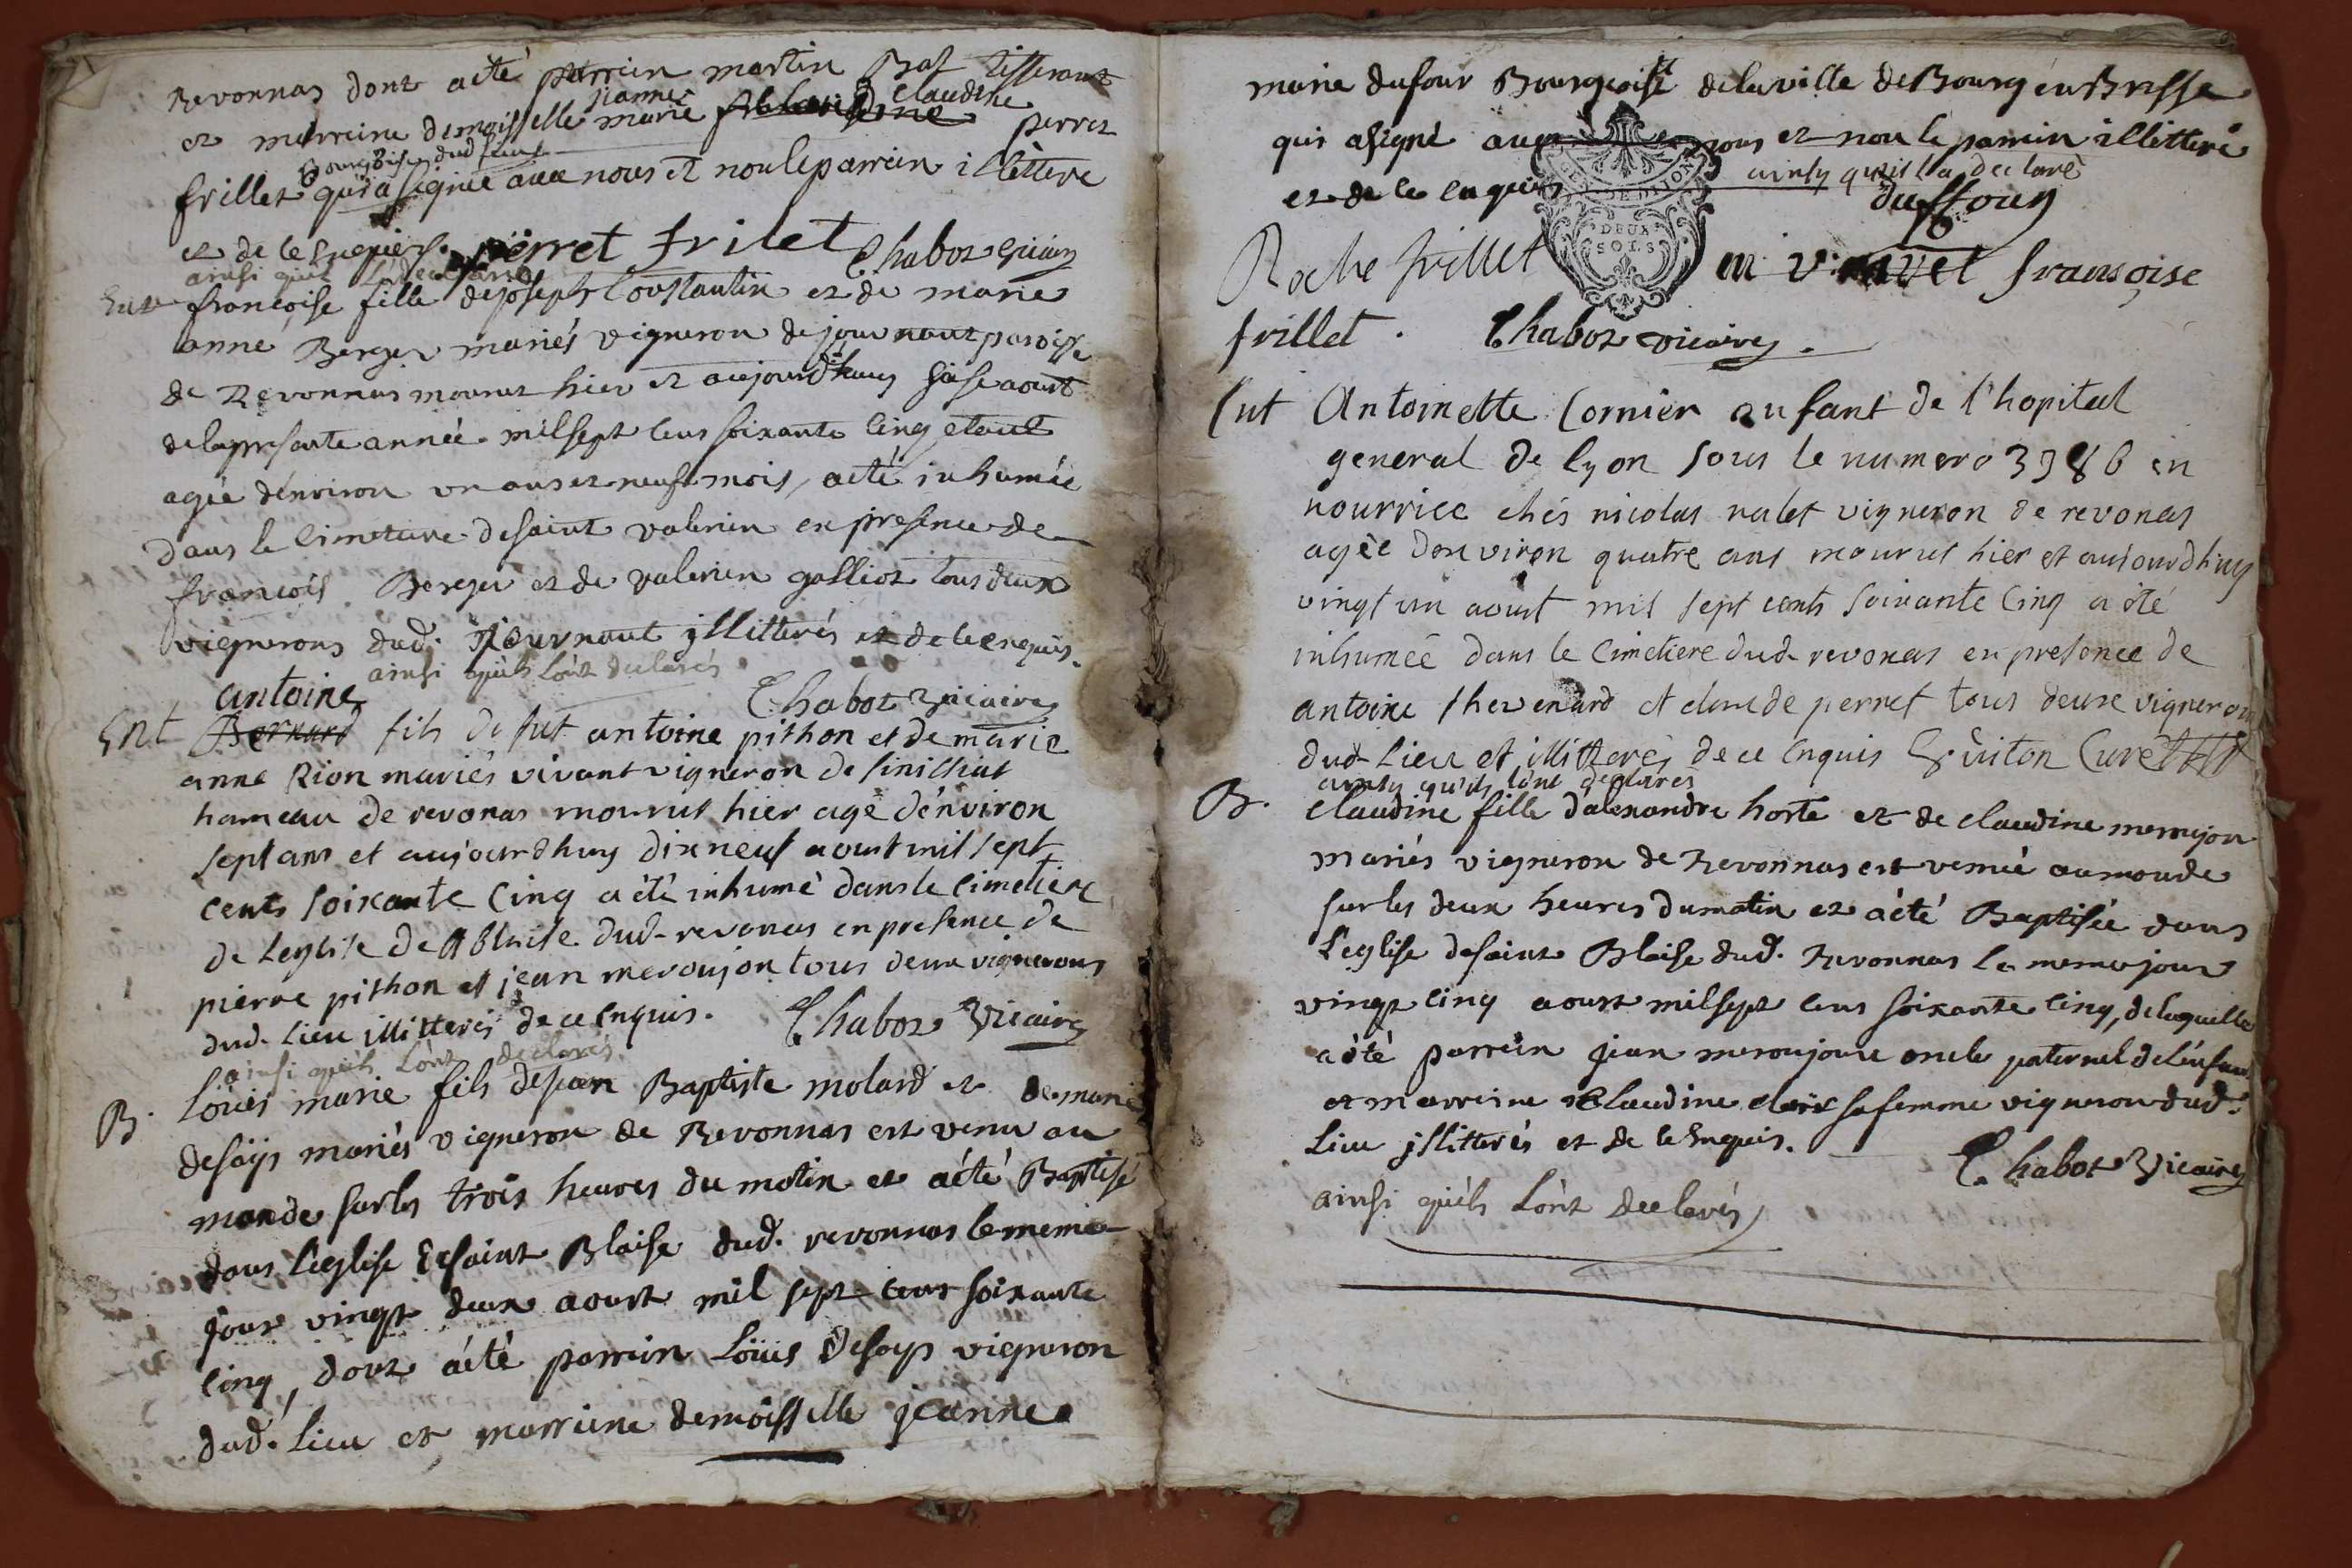 Revonnas dont acté parrein martin Bal tisserant
et marreine demoisselle jeanne marie claudine perret
Bourgeoise dud lieu
frillet qui a signé avec nous et non le parrein illitere
et de le enquiers. pierret frilet Chabot vicaire
ainsi quil la declaré
Ent francoise fille de joseph Constantin et de marie
anne Berger mariés vigneron de journant paroisse
de Revonnas mourut hier et aujourdhuy saise aoust
de la presante année mil sept cens soixante cinq etant
agée d'environ un ans et neuf mois, a eté inhumée
dans le Cimetiere de saint valerien en presence de
francois Berger et de valerien galliot tous deux
vignerons dud. journant jllitterés et de le enquis.
ainsi quils l'ont declarés
Chabot vicaire
antoine
Ent Bernard fils de fut antoine pithon et de marie
anne Rion mariés vivant vigneron de sinissiat
hameau de revonas mourut hier agé d'environ
sept ans et aujourdhuy dix neuf aoust mil sept
cents soixante Cinq a été inhumé dans le Cimetiere
de Leglise de st blaise dud. revonas en presence de
pierre pithon et jean meroujon tous deux vignerons
dud. lieu illitterés de ce Enquis. Chabot Vicaire
ainsi quils l'ont declarés
B. Loüis marie fils de jean Baptiste molard et de marie
desays mariés vigneron de Revonnas est venu au
monde sur les trois heures du matin et a été Baptisé
dans l'eglise de saint Blaise dud. revonnas le meme
jour vingt deux aoust mil sept cens soixante
cinq, dont a été parrein Loüis desays vigneron
dud. lieu et marreine demoisselle jeanne
marie dufour Bourgeoise de la ville de Bourg en Bresse
qui a signé avec nous et non le parrein illitteré
et de le enquis ainsy qu'il l'a declaré
GEN. DE DIJON
DEUX SOLS
duffour
Roche frillet m vi francoise
frillet. Chabot vicaire.
Ent Antoinette Cornier enfant de l'hopital
general de lyon sous le numero 3986 en
nourrice chés nicolas valet vigneron de revonas
agée d'environ quatre ans mourut hier et aujourdhuy
vingt un aoust mil sept cents soixante Cinq a été
inhumée dans le Cimetiere dud. revonas en presence de
antoine thevenard et claude perret tous deux vignerons
dud. lieu et illitterés de ce Enquis Guiton Curé
ainsy qu'ils l'ont declarés
B. Claudine fille d'alexandre horte et de claudine meroujon
mariés vigneron de Revonnas est venuë au monde
sur les deux heures du matin et a été Baptisée dans
l'eglise de saint Blaise dud. Revonnas le meme jour
vingt cinq aoust mil sept cens soixante cinq, de laquelle
a été parrein jean meroujone oncle paternel de l'enfant
et marreine Claudine sa femme vigneron dud.
lieu jllitterés et de le enquis. Chabot Vicaire
ainsi quils l'ont declarés